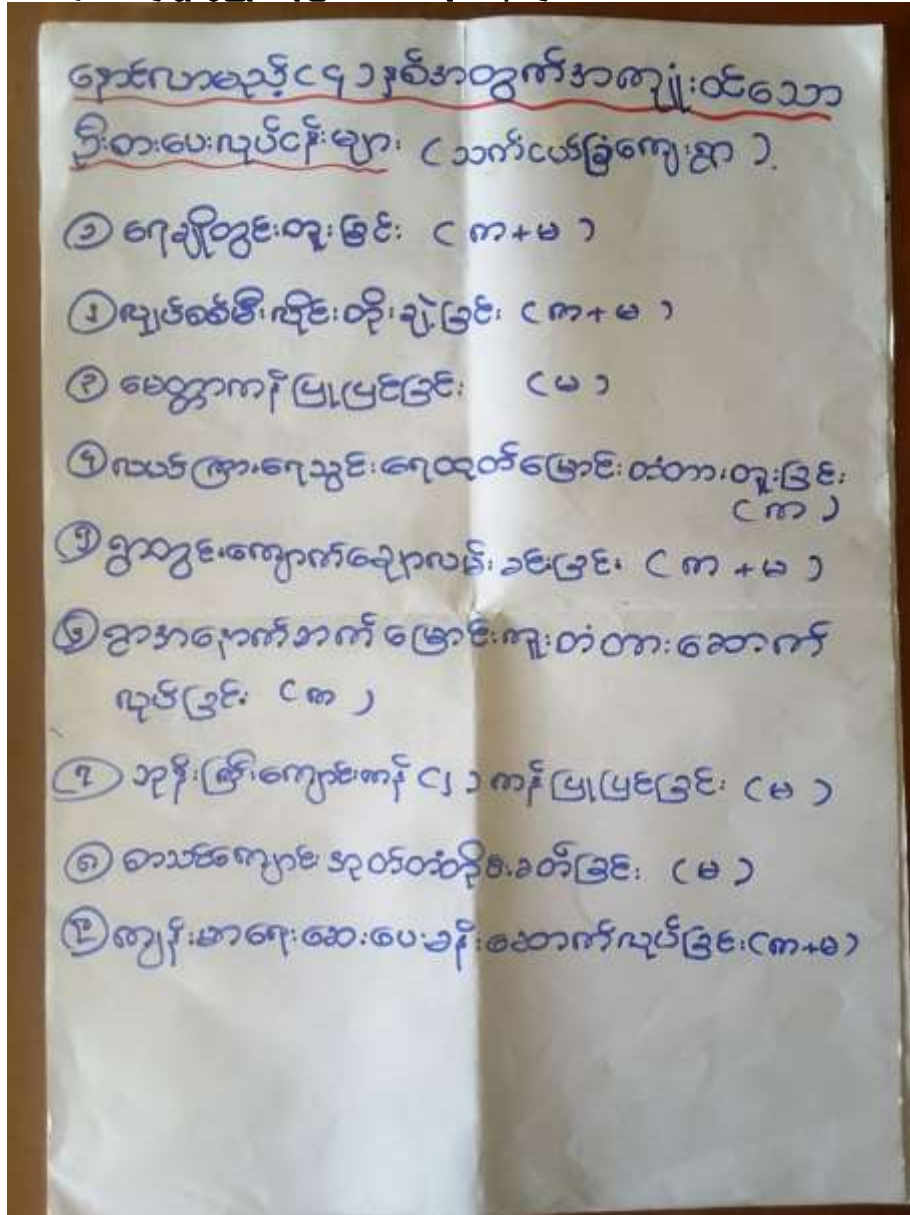 နောင်လာမည့်(၄)နှစ်အတွက်အကျုံးဝင်သော
ဦးစားပေးလုပ်ငန်းများ (သက်ငယ်ခြုံကျေးရွာ).
① ရေချိုတွင်းတူးခြင်း (က+မ)
② လျှပ်စစ်မီးလိုင်းတိုးချဲ့ခြင်း (က+မ)
③ မေတ္တာကန်ပြုပြင်ခြင်း (မ)
④ လယ်ကြားရေသွင်းရေထုတ်မြောင်းတံတားတူးခြင်း
(က)
⑤ ရွာတွင်းကျောက်ချောလမ်းခင်းခြင်း (က+မ)
⑥ ရွာအနောက်ဘက်မြောင်းကူးတံတားဆောက်
လုပ်ခြင်း (က)
⑦ ဘုန်းကြီးကျောင်းကန်(၂)ကန်ပြုပြင်ခြင်း (မ)
⑧ စာသင်ကျောင်းအုတ်တံတိုင်းခတ်ခြင်း (မ)
⑨ ကျန်းမာရေးဆေးပေးခန်းဆောက်လုပ်ခြင်း(က+မ)